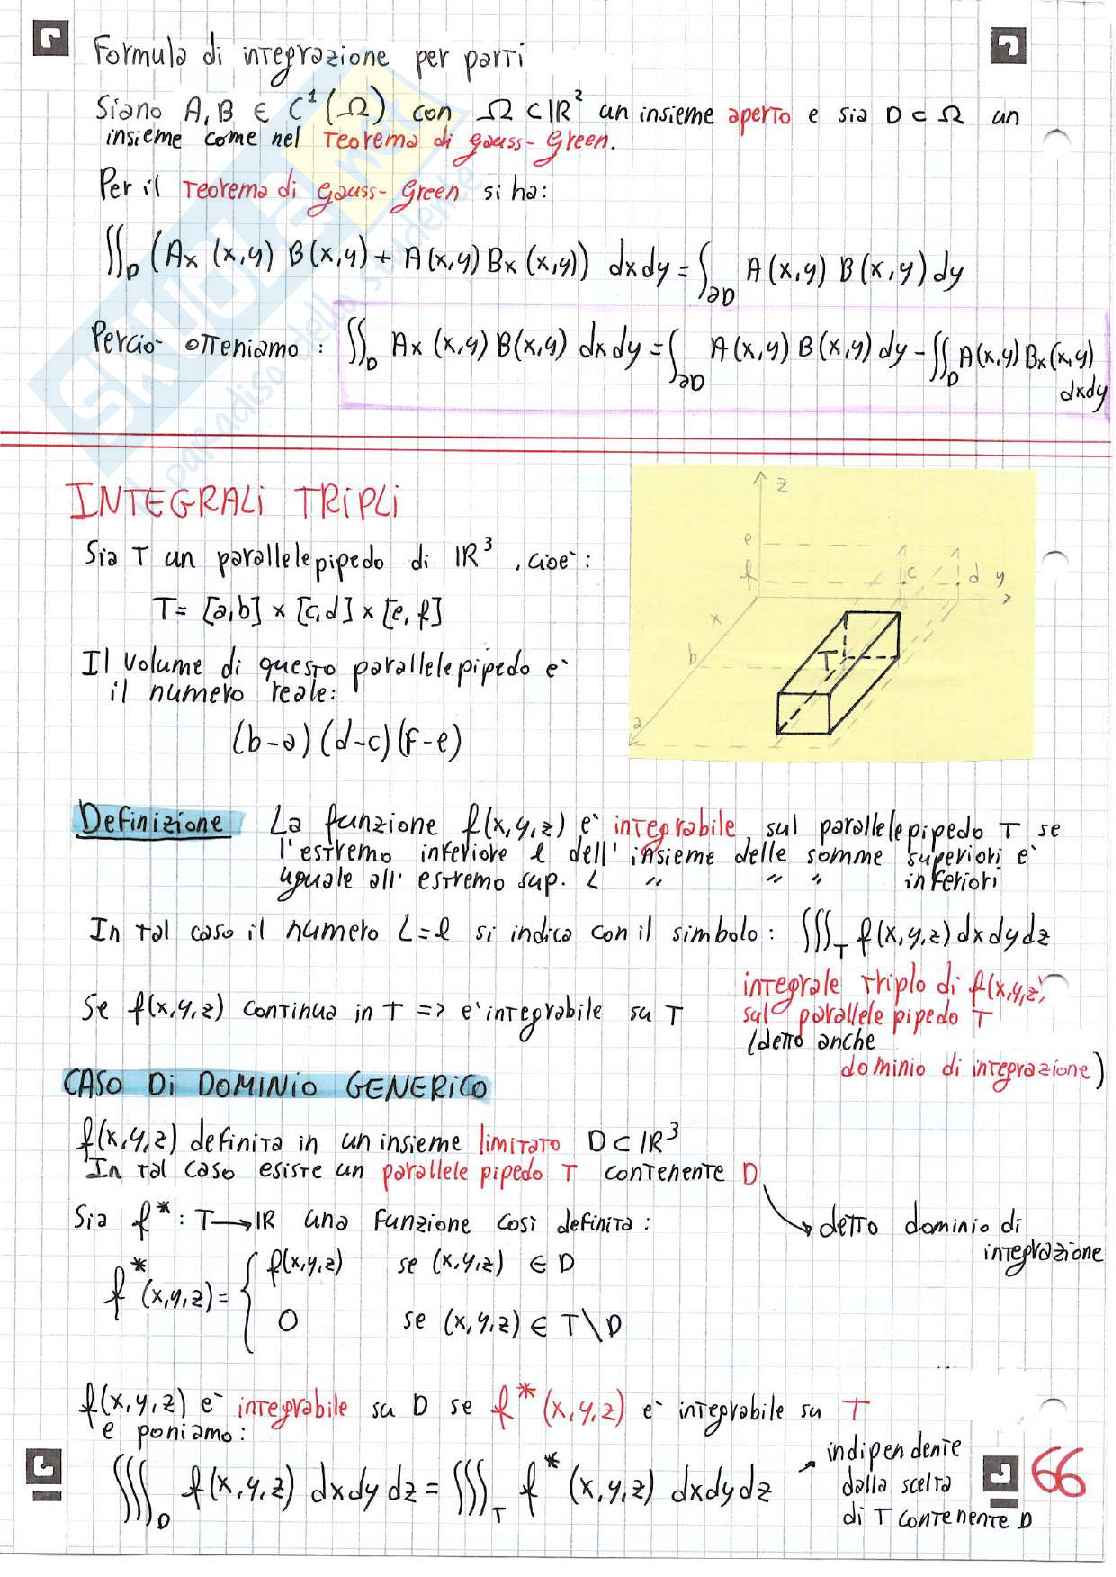 Formula di integrazione per parti
Siano A, B ∈ C¹(Ω) con Ω ⊂ ℝ² un insieme aperto e sia D ⊂ Ω un
insieme come nel Teorema di Gauss-Green.
Per il Teorema di Gauss-Green si ha:
∬_D (Ax (x,y) B(x,y) + A(x,y) Bx (x,y)) dxdy = ∫_∂D A(x,y) B(x,y) dy
Percio' otteniamo : ∬_D Ax (x,y) B(x,y) dx dy = ∫_∂D A(x,y) B(x,y) dy - ∬_D A(x,y) Bx(x,y)
dxdy
INTEGRALI TRIPLI
Sia T un parallelepipedo di ℝ³, cioe' :
T = [a,b] × [c,d] × [e,f]
Il volume di questo parallelepipedo e'
il numero reale:
(b-a) (d-c) (f-e)
z
e
f
c d y
x
b
T
a
Definizione La funzione f(x,y,z) e' integrabile sul parallelepipedo T se
l'estremo inferiore l dell'insieme delle somme superiori e'
uguale all'estremo sup. L " " " inferiori
In tal caso il numero L=l si indica con il simbolo : ∭_T f(x,y,z) dx dy dz
integrale triplo di f(x,y,z)
Se f(x,y,z) continua in T => e' integrabile su T
sul parallelepipedo T
(detto anche
dominio di integrazione)
CASO DI DOMINIO GENERICO
f(x,y,z) definita in un insieme limitato D ⊂ ℝ³
In tal caso esiste un parallelepipedo T contenente D
Sia f* : T → ℝ una funzione così definita :
detto dominio di
integrazione
f*(x,y,z) = { f(x,y,z) se (x,y,z) ∈ D
0 se (x,y,z) ∈ T\D
f(x,y,z) e' integrabile su D se f*(x,y,z) e' integrabile su T
e poniamo:
∭_D f(x,y,z) dxdy dz = ∭_T f*(x,y,z) dxdydz
indipendente
dalla scelta
di T contenente D
66
SKUOLA.net
il paradiso dello studente